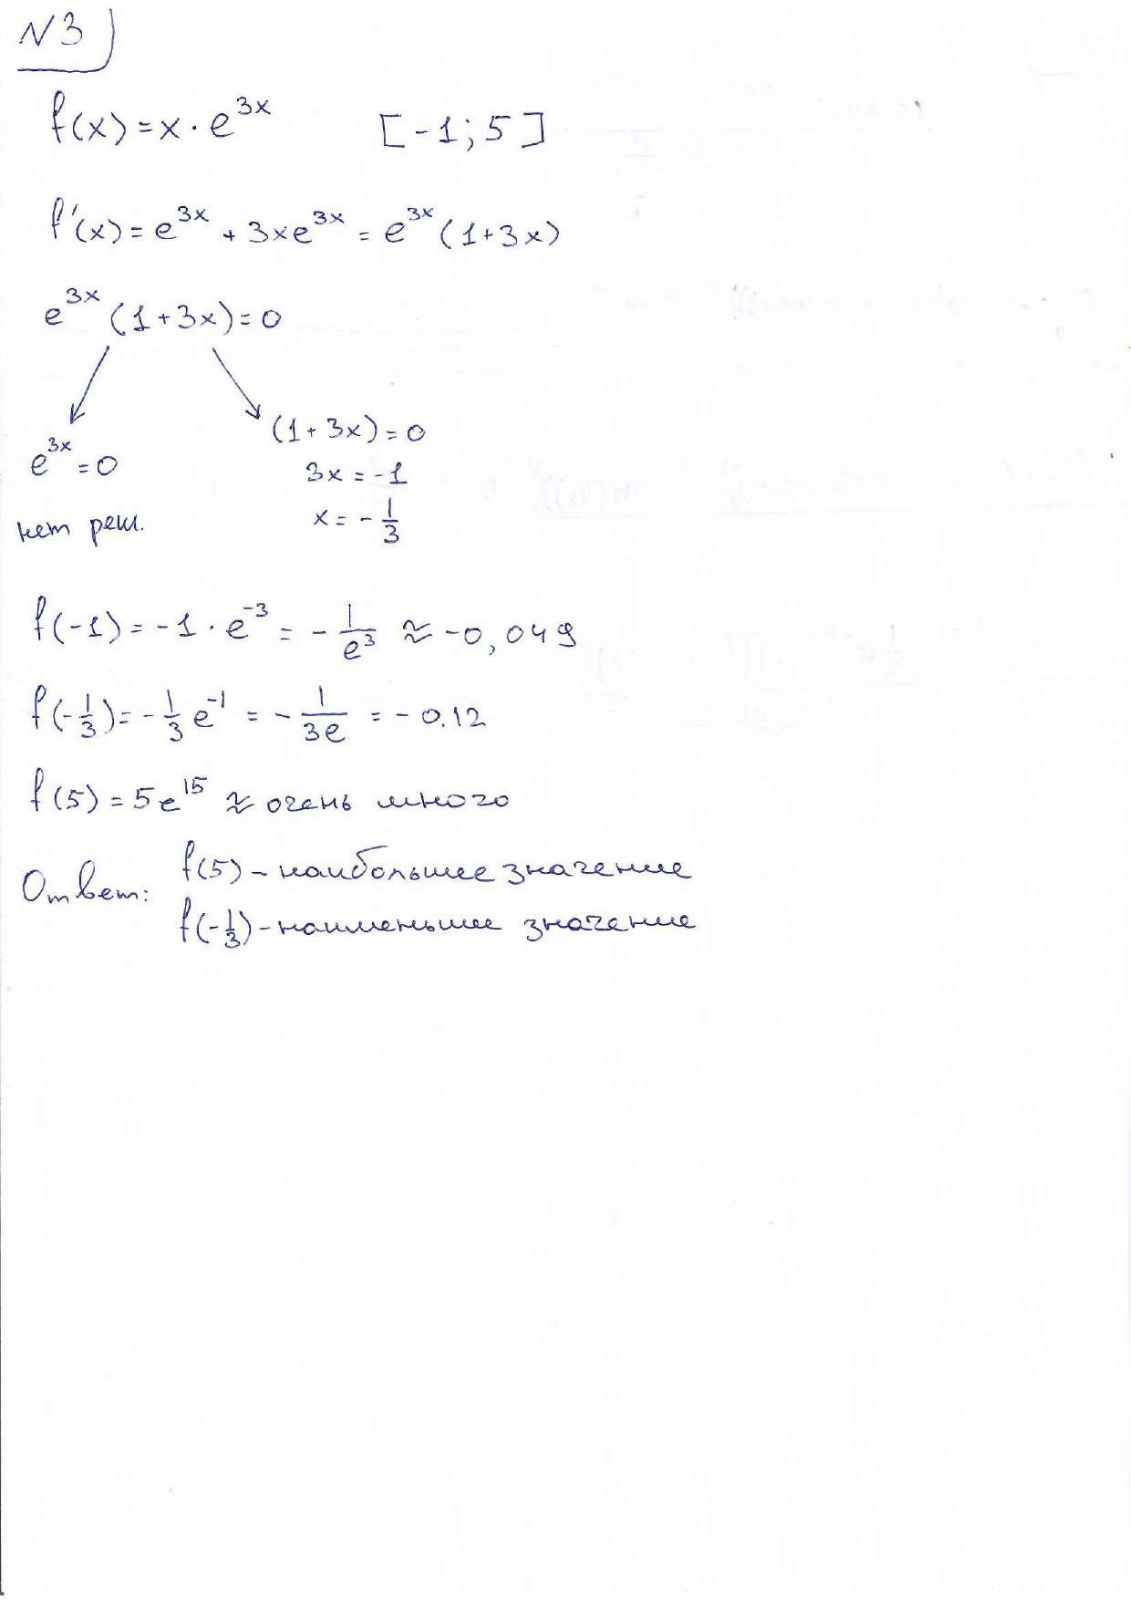 N3
f(x) = x · e^{3x} [-1; 5]
f'(x) = e^{3x} + 3xe^{3x} = e^{3x} (1+3x)
e^{3x} (1+3x) = 0
(1+3x) = 0
e^{3x} = 0
3x = -1
нет реш.
x = -1/3
f(-1) = -1 · e^{-3} = -1/e^3 ≈ -0,049
f(-1/3) = -1/3 e^{-1} = -1/3e = -0.12
f(5) = 5e^{15} ≈ очень много
Ответ: f(5) - наибольшее значение
f(-1/3) - наименьшее значение